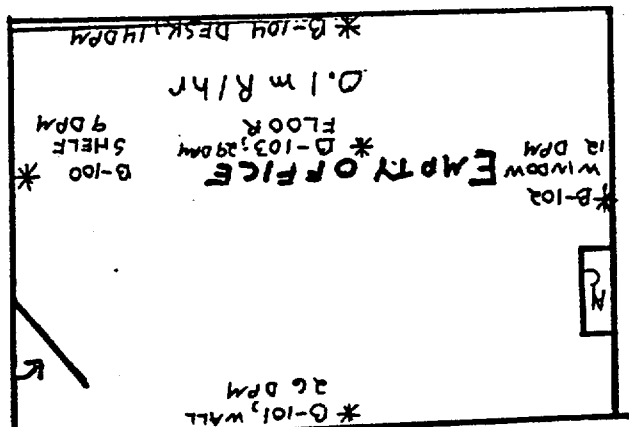 * B-101, WALL
26 DPM
AC
* B-102
WINDOW
12 DPM
EMPTY OFFICE
* B-103; 29 DPM
FLOOR
B-100 *
SHELF
9 DPM
0.1 mR/hr
* B-104 DESK, 14 DPM